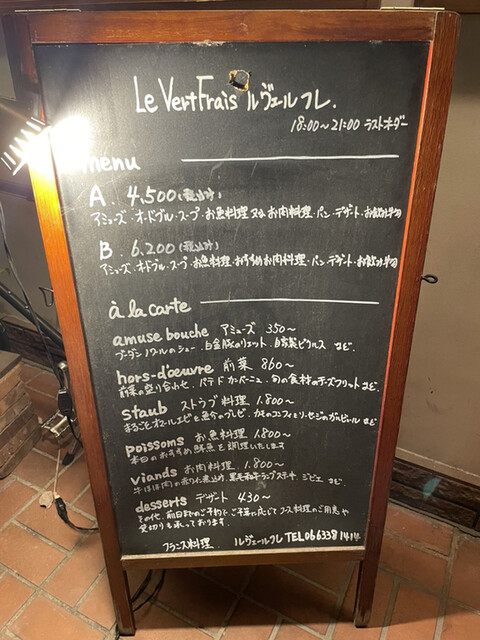 Le VertFrais ルヴェール フレ.
18:00～21:00 ラストオーダー
menu
A. 4,500(税込み)
アミューズ・オードブル・スープ・お魚料理又はお肉料理・パン・デザート・お飲み物
B. 6,200(税込み)
アミューズ・オードブル・スープ・お魚料理・おすすめお肉料理・パン・デザート・お飲み物
à la carte
amuse bouche アミューズ 350～
ブーダンノワールのシュー. 白金豚のリエット. 自家製ピクルス など.
hors-d'œuvre 前菜 860～
前菜の盛り合わせ. パテ ド カンパーニュ. 旬の食材のチーズフリット など.
staub ストウブ料理 1.800～
まるごとオマールエビと魚介のブレゼ. カモのコンフィとソーセージのガルビール など
poissons お魚料理 1.800～
本日のおすすめ鮮魚を調理いたします
viands お肉料理. 1.800～
牛ほほ肉の赤ワイン煮込み. 黒毛和牛ランプステーキ. ジビエ など.
desserts デザート 430～
その他. 前日までのご予約で ご予算に応じてコース料理のご用意や
貸切りも承っております.
フランス料理. ルヴェールフレ TEL 06 6338 1414